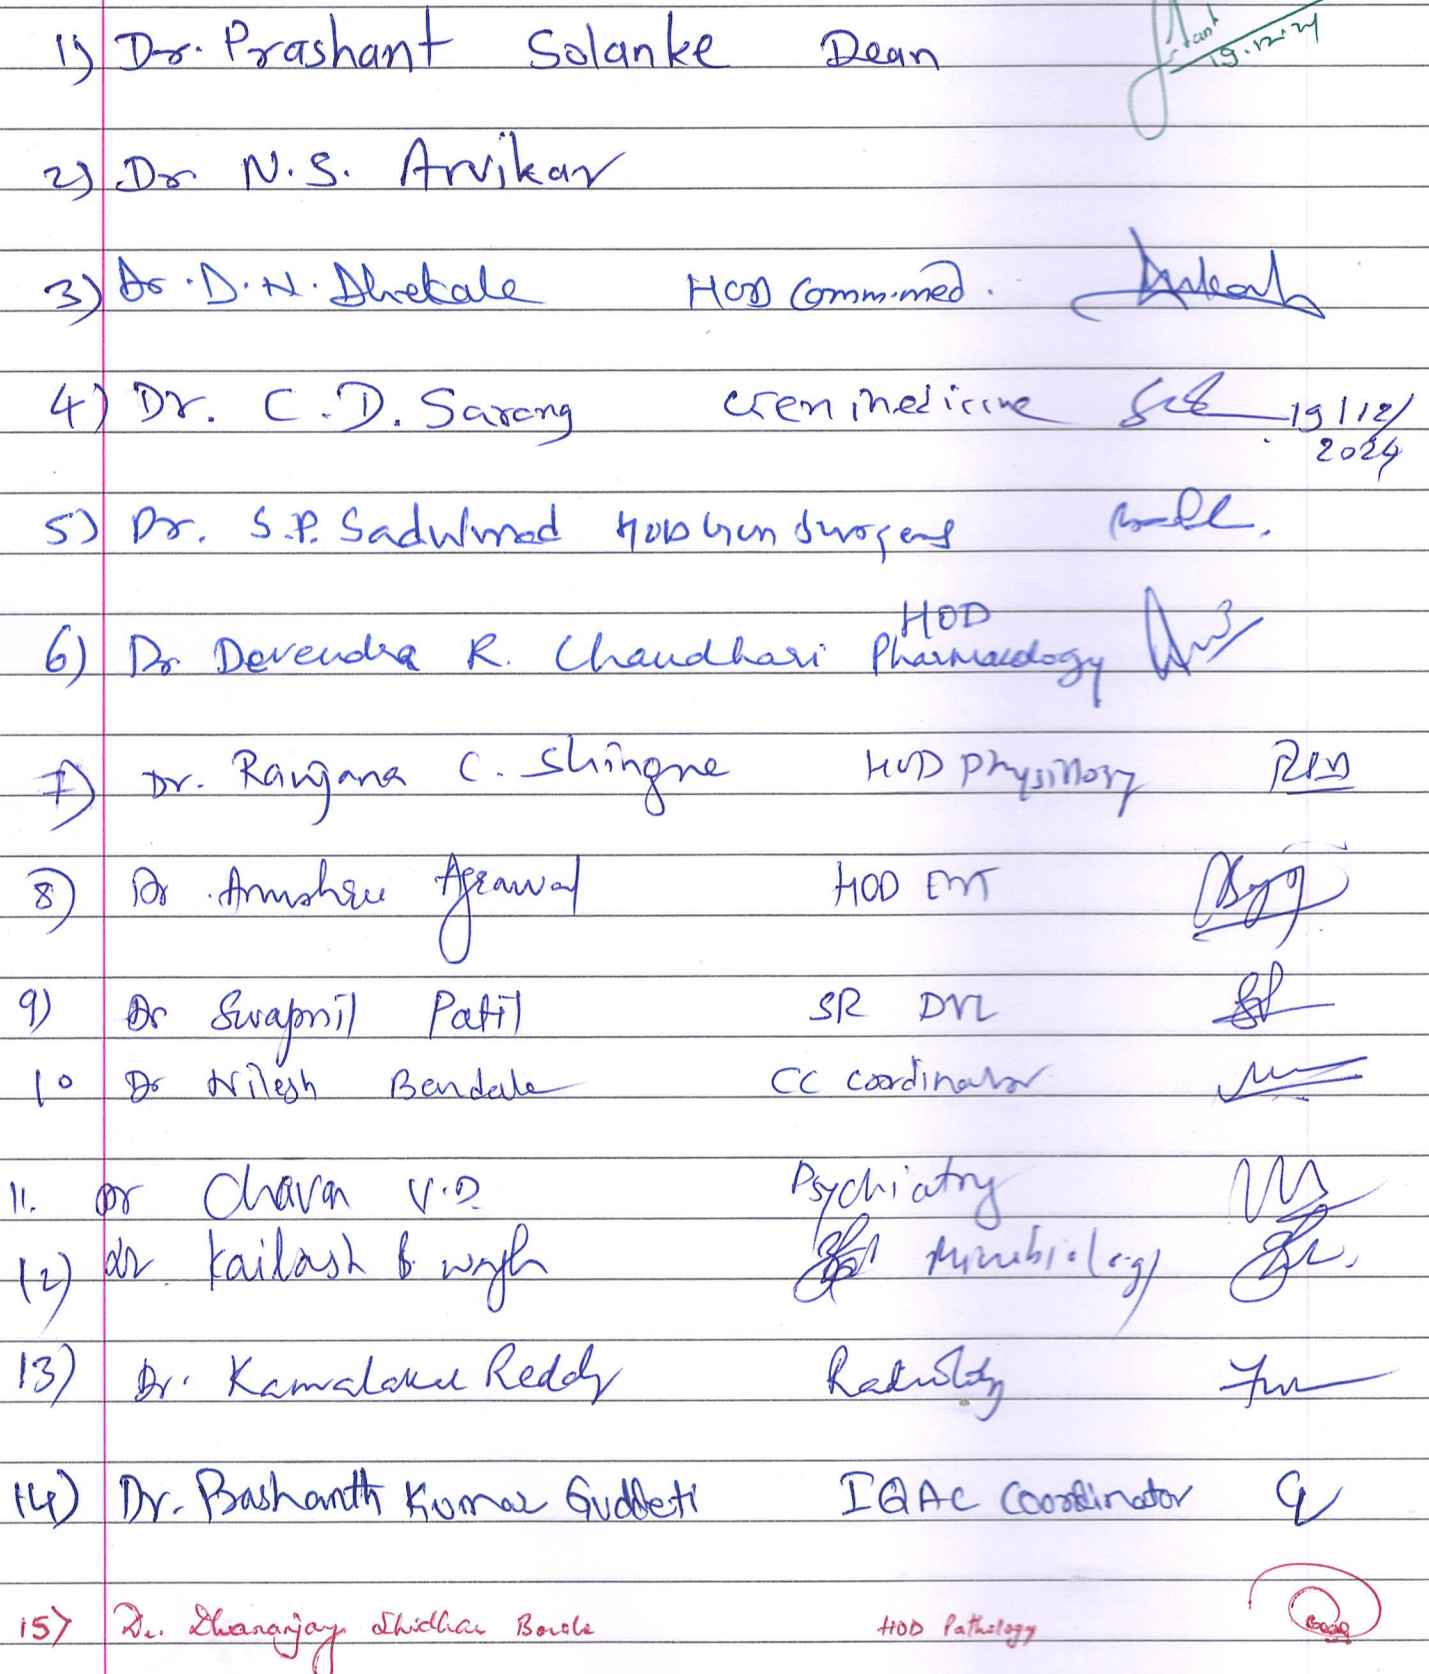 1) Dr. Prashant Solanke Dean 19.12.24
2) Dr. N.S. Arvikar
3) Dr. D.N. Dhekale HOD Comm.med.
4) Dr. C.D. Sarang Gen medicine 19/12/
2024
5) Dr. S.P. HOD Gen
HOD
6) Dr Devendra R. Chaudhari Pharmacology
7) Dr. Ranjana C. Shingne HOD Physiology
8) Dr. Anushree Agrawal HOD ENT
9) Dr Swapnil Patil SR DVL
10 Dr Nilesh Bendale CC coordinator
11. Dr Chavan V.D. Psychiatry
12) dr. Kailash B wagh Microbiology
13) Dr. Reddy Radiology
14) Dr. Prashanth Kumar Guddeti IQAC Coordinator
15) Dr. Dhananjay Shridhar Borole HOD Pathology